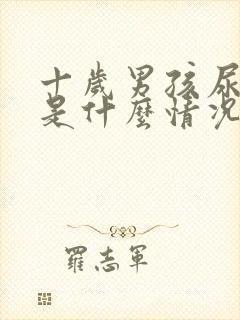 十歲男孩尿
是什麼情況
羅志軍